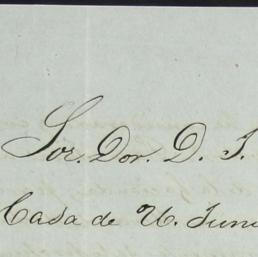 Sor. Dor. D. J.
Casa de U. Juni